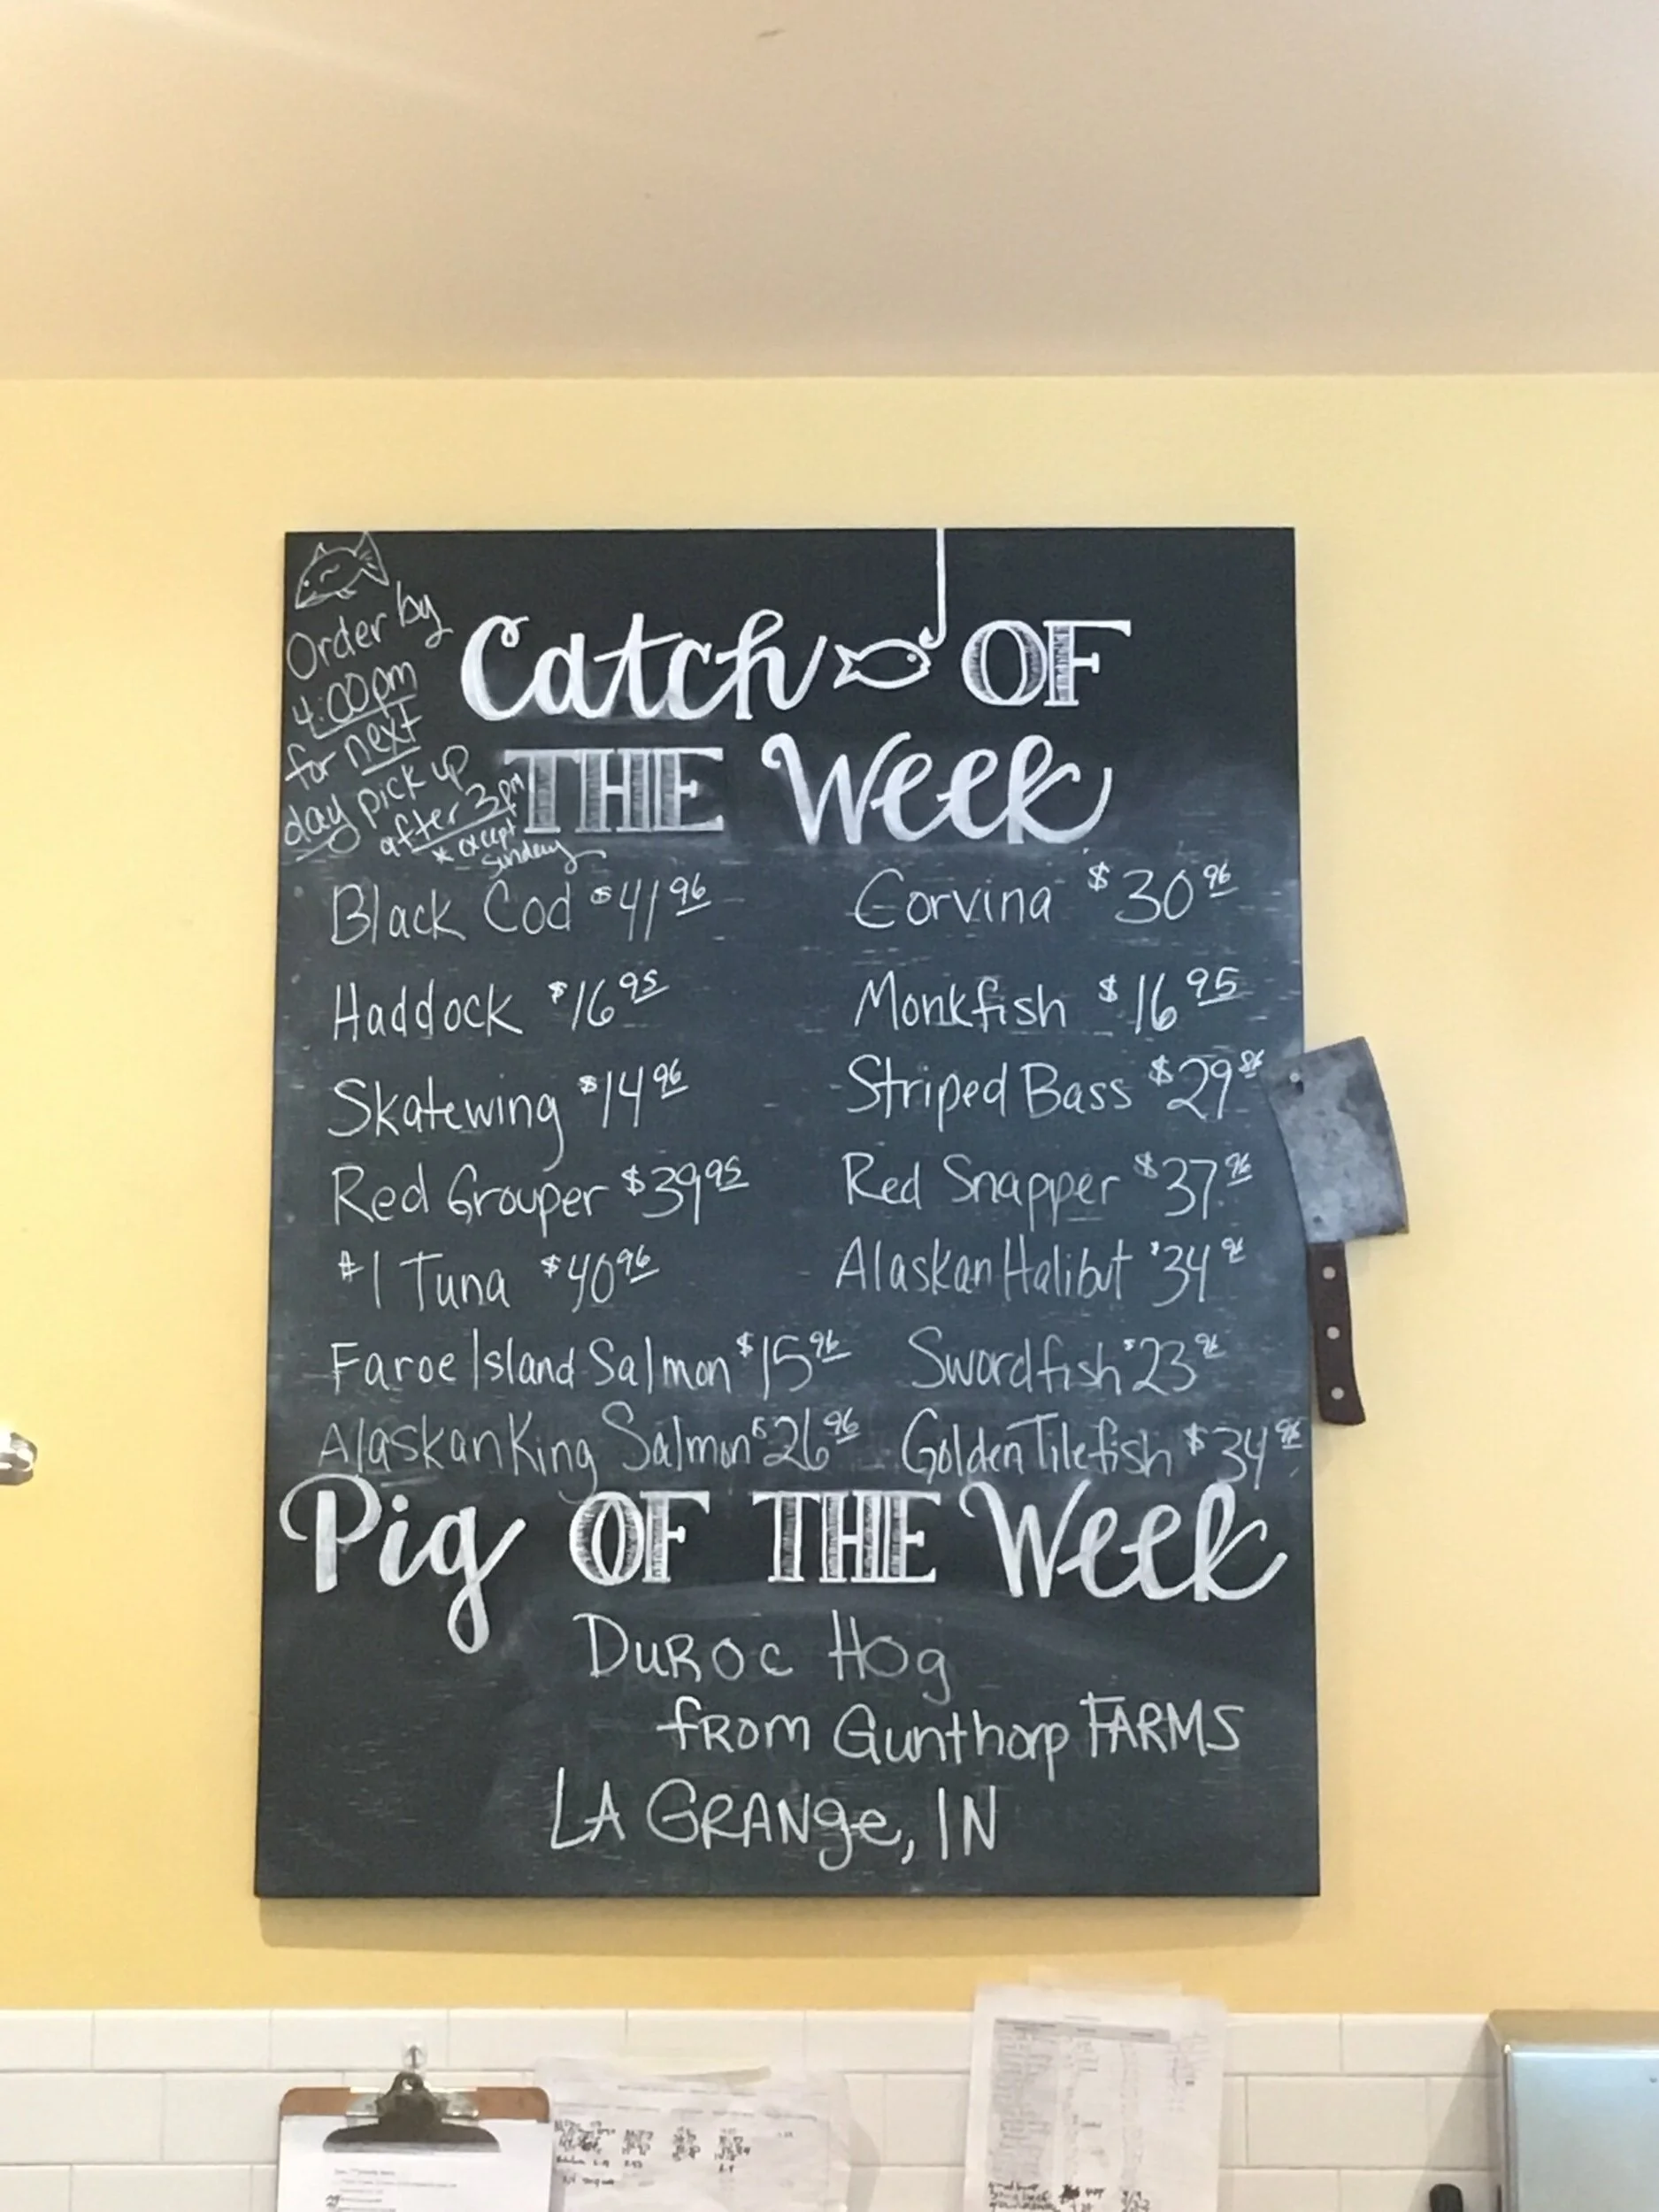 Order by
4:00pm
for next
day pick up
after 3pm
* except
Sunday
Catch OF
THE Week
Black Cod $41 96
Corvina $30 96
Haddock $16 95
Monkfish $16 95
Skatewing $14 96
Striped Bass $29
Red Grouper $39 95
Red Snapper $37 96
#1 Tuna $40 96
Alaskan Halibut $34 96
Faroe Island Salmon $15 96
Swordfish $23 96
Alaskan King Salmon $26 96
Golden Tilefish $34 96
Pig OF THE Week
DuROC Hog
fROM Gunthorp FARMS
LA GRANge, IN